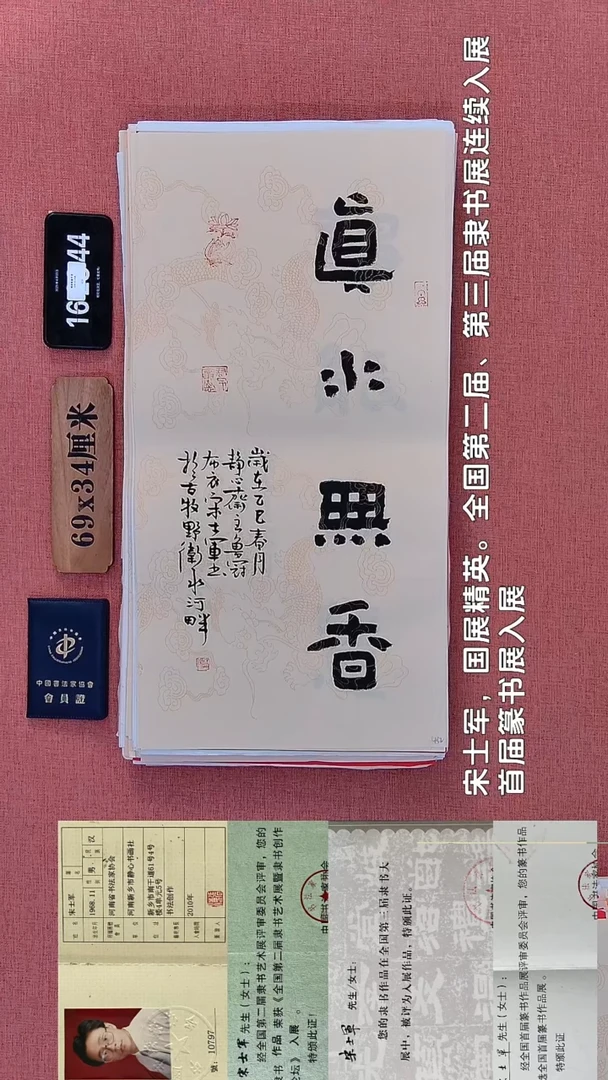 宋士军，国展精英。全国第二届、第三届隶书展连续入展
首届篆书展入展
真水無香
歲在乙巳春月
布衣宋士軍書
於古牧野衛水河畔
69x34厘米
中國書法家協會
會員證
宋士军
男
汉
1968.11
河南省书法家协会
河南新乡市静心书画社
新乡市南干道61号4号
楼4单元5号
书法创作
2010年
號：10797
宋士军 先生（女士）：
经全国第二届隶书艺术展评审委员会评审，您的
隶书 作品 荣获《全国第二届隶书艺术展暨隶书创作
论坛》入展。
特颁此证！
宋士军 先生/女士：
您的隶书作品在全国第三届隶书大
展中，被评为入展作品，特颁此证。
士军 先生（女士）：
经全国首届篆书作品展评审委员会评审，您的篆书作品
选全国首届篆书作品展。
特颁此证